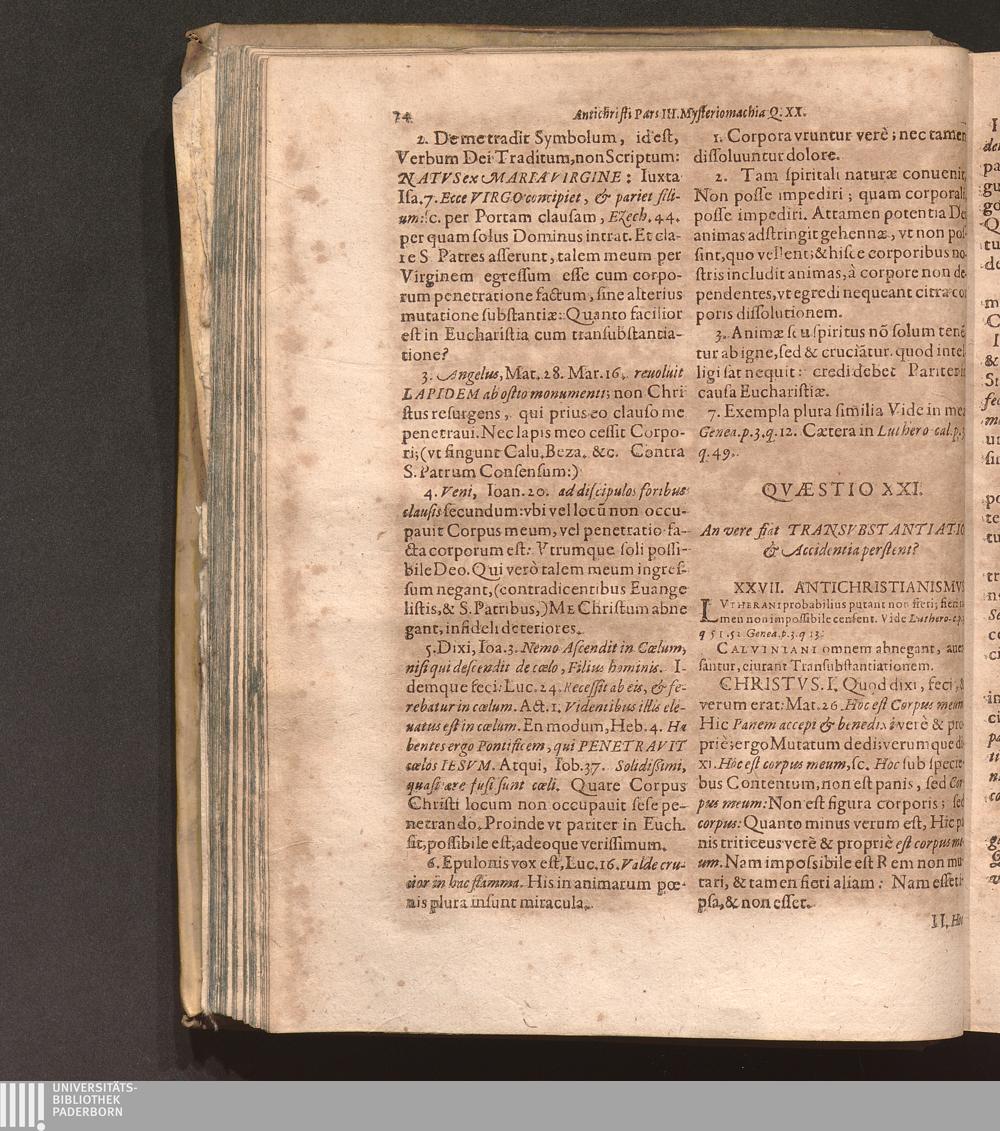 74 Antichristi Pars III. Mysteriomachia Q. XX.
2. De me tradit Symbolum, id est,
Verbum Dei Traditum, non Scriptum:
NATVS ex MARIA VIRGINE: Iuxta
Isa. 7. Ecce VIRGO concipiet, & pariet fili-
um: sc. per Portam clausam, Ezech. 44.
per quam solus Dominus intrat. Et cla-
re S Patres asserunt, talem meum per
Virginem egressum esse cum corpo-
rum penetratione factum, sine alterius
mutatione substantiæ: Quanto facilior
est in Eucharistia cum transubstantia-
tione?
3. Angelus, Mat. 28. Mar. 16. reuoluit
LAPIDEM ab ostio monumenti; non Chri
stus resurgens, qui prius eo clauso me
penetraui. Nec lapis meo cessit Corpo-
ri; (vt fingunt Calu. Beza. &c. Contra
S. Patrum Consensum:)
4. Veni, Ioan. 20. ad discipulos foribus
clausis secundum: vbi vel locũ non occu-
pauit Corpus meum, vel penetratio fa-
cta corporum est: Vtrumque soli possi-
bile Deo. Qui verò talem meum ingres-
sum negant, (contradicentibus Euange
listis, & S. Patribus,) ME Christum abne
gant, infideli deteriores.
5. Dixi, Ioa. 3. Nemo Ascendit in Cœlum,
nisi qui descendit de cœlo, Filius hominis. I-
demque feci: Luc. 24. Recessit ab eis, & fe-
rebatur in cœlum. Act. 1. Videntibus illis ele-
uatus est in cœlum. En modum, Heb. 4. Ha
bentes ergo Pontificem, qui PENETRAVIT
cœlos IESVM. Atqui, Iob. 37. Solidissimi,
quasi ære fusi sunt cœli. Quare Corpus
Christi locum non occupauit sese pe-
netrando. Proinde vt pariter in Euch.
sit, possibile est, adeoque verissimum.
6. Epulonis vox est, Luc. 16. Valde cru-
cior in hac flamma. His in animarum pœ-
nis plura insunt miracula.
1. Corpora vruntur verè; nec tamen
dissoluuntur dolore.
2. Tam spiritali naturæ conuenit,
Non posse impediri; quam corporali,
posse impediri. Attamen potentia De
animas adstringit gehennæ, vt non pos
sint, quo vellent; & hisce corporibus no-
stris includit animas, à corpore non de-
pendentes, vt egredi nequeant citra cor
poris dissolutionem.
3. Animæ seu spiritus nõ solum tenẽ
tur ab igne, sed & cruciãtur. quod intel
ligi sat nequit: credi debet Pariter
causa Eucharistiæ.
7. Exempla plura similia Vide in me
Genea. p. 3. q. 12. Cætera in Luthero-cal. p. 3
q. 49.
QVÆSTIO XXI.
An vere fiat TRANSVBSTANTIATIO
& Accidentia perstent?
XXVII. ANTICHRISTIANISMVS
LVTHERANI probabilius putant non fieri; fieri
men non impossibile censent. Vide Luthero-c. p.
q 51. 52 Genea. p. 3. q 13.
CALVINIANI omnem abnegant, auer
santur, eiurant Transubstantiationem.
CHRISTVS. I. Quod dixi, feci, &
verum erat: Mat. 26. Hoc est Corpus meum
Hic Panem accepi & benedixi verè & pro
priè; ergo Mutatum dedi; verumque di
xi. Hoc est corpus meum, sc. Hoc sub specie
bus Contentum, non est panis, sed Cor
pus meum: Non est figura corporis; sed
corpus: Quanto minus verum est, Hic pa
nis triticeus verè & propriè est corpus me
um. Nam impossibile est Rem non mu
tari, & tamen fieri aliam: Nam esset i
psa, & non esset.
II. Hoc
UNIVERSITÄTS-
BIBLIOTHEK
PADERBORN